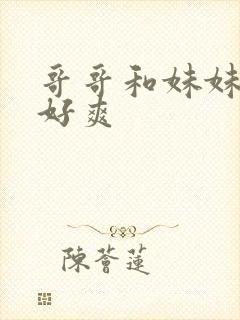 哥哥和妹妹
好爽
陳薈蓮